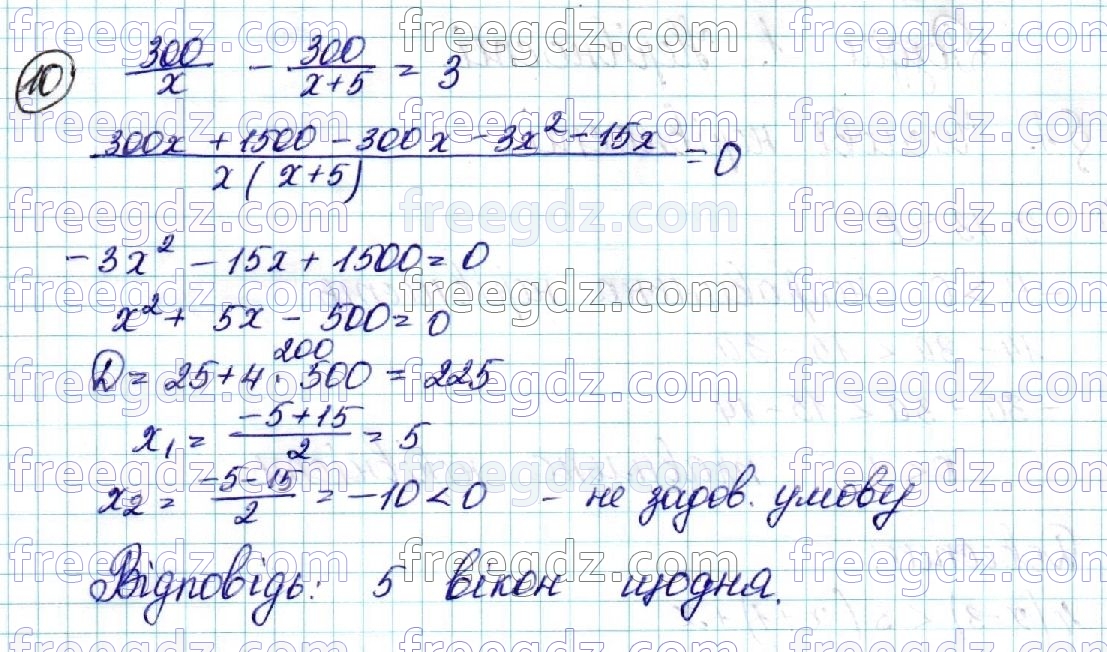 10 300/x - 300/(x+5) = 3
(300x + 1500 - 300x - 3x² - 15x)/(x(x+5)) = 0
-3x² - 15x + 1500 = 0
x² + 5x - 500 = 0
200
D = 25 + 4 · 500 = 225
x₁ = (-5+15)/2 = 5
x₂ = (-5-15)/2 = -10 < 0 - не задов. умову
Відповідь: 5 вікон щодня.
freegdz.com